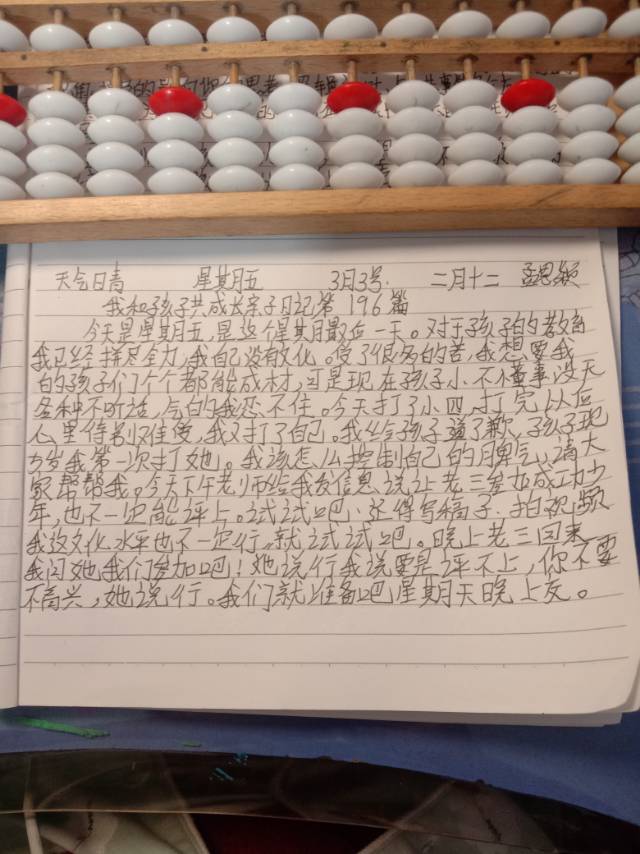 天气日青 星其月五 3月3号. 二月十二
我和孩子共成长亲子日记第196篇
今天是星其月五,是这个星其月最后一天。对于孩子的教育
我已经拼尽全力,我自己没有文化。受了很多的苦,我想要我
的孩子们个个都能成材,可是现在孩子小不懂事没天
各种不听话,气的我忍不住。今天打了小四,打完以后
心里特别难受,我又打了自己。我给孩子道了歉,孩子现
6岁我第一次打她。我该怎么控制自己的脾气,请大
家帮帮我。今天下午老师给我发信息说让老三参加成功少
年,也不一定能评上。试试吧、还得写稿子.拍视频
我这文化水平也不一定行。就试试吧。晚上老三回来
我问她我们参加吧!她说行我说要是评不上,你不要
不高兴,她说行。我们就准备吧星其月天晚上友。